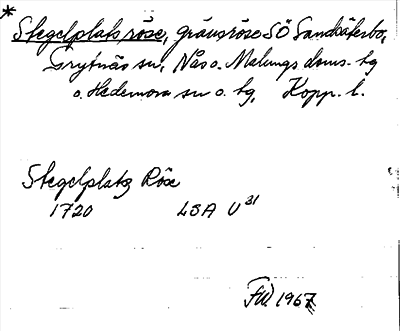 * Stegelplats röse, gränsröse SÖ Sandsäterbo,
Grytnäs sn, Näs o. Malungs doms. hg
o. Hedemora sn o. tg, Kopp. l.
Stegelplatz Röse
1720 LSA U 31
FW. 1967